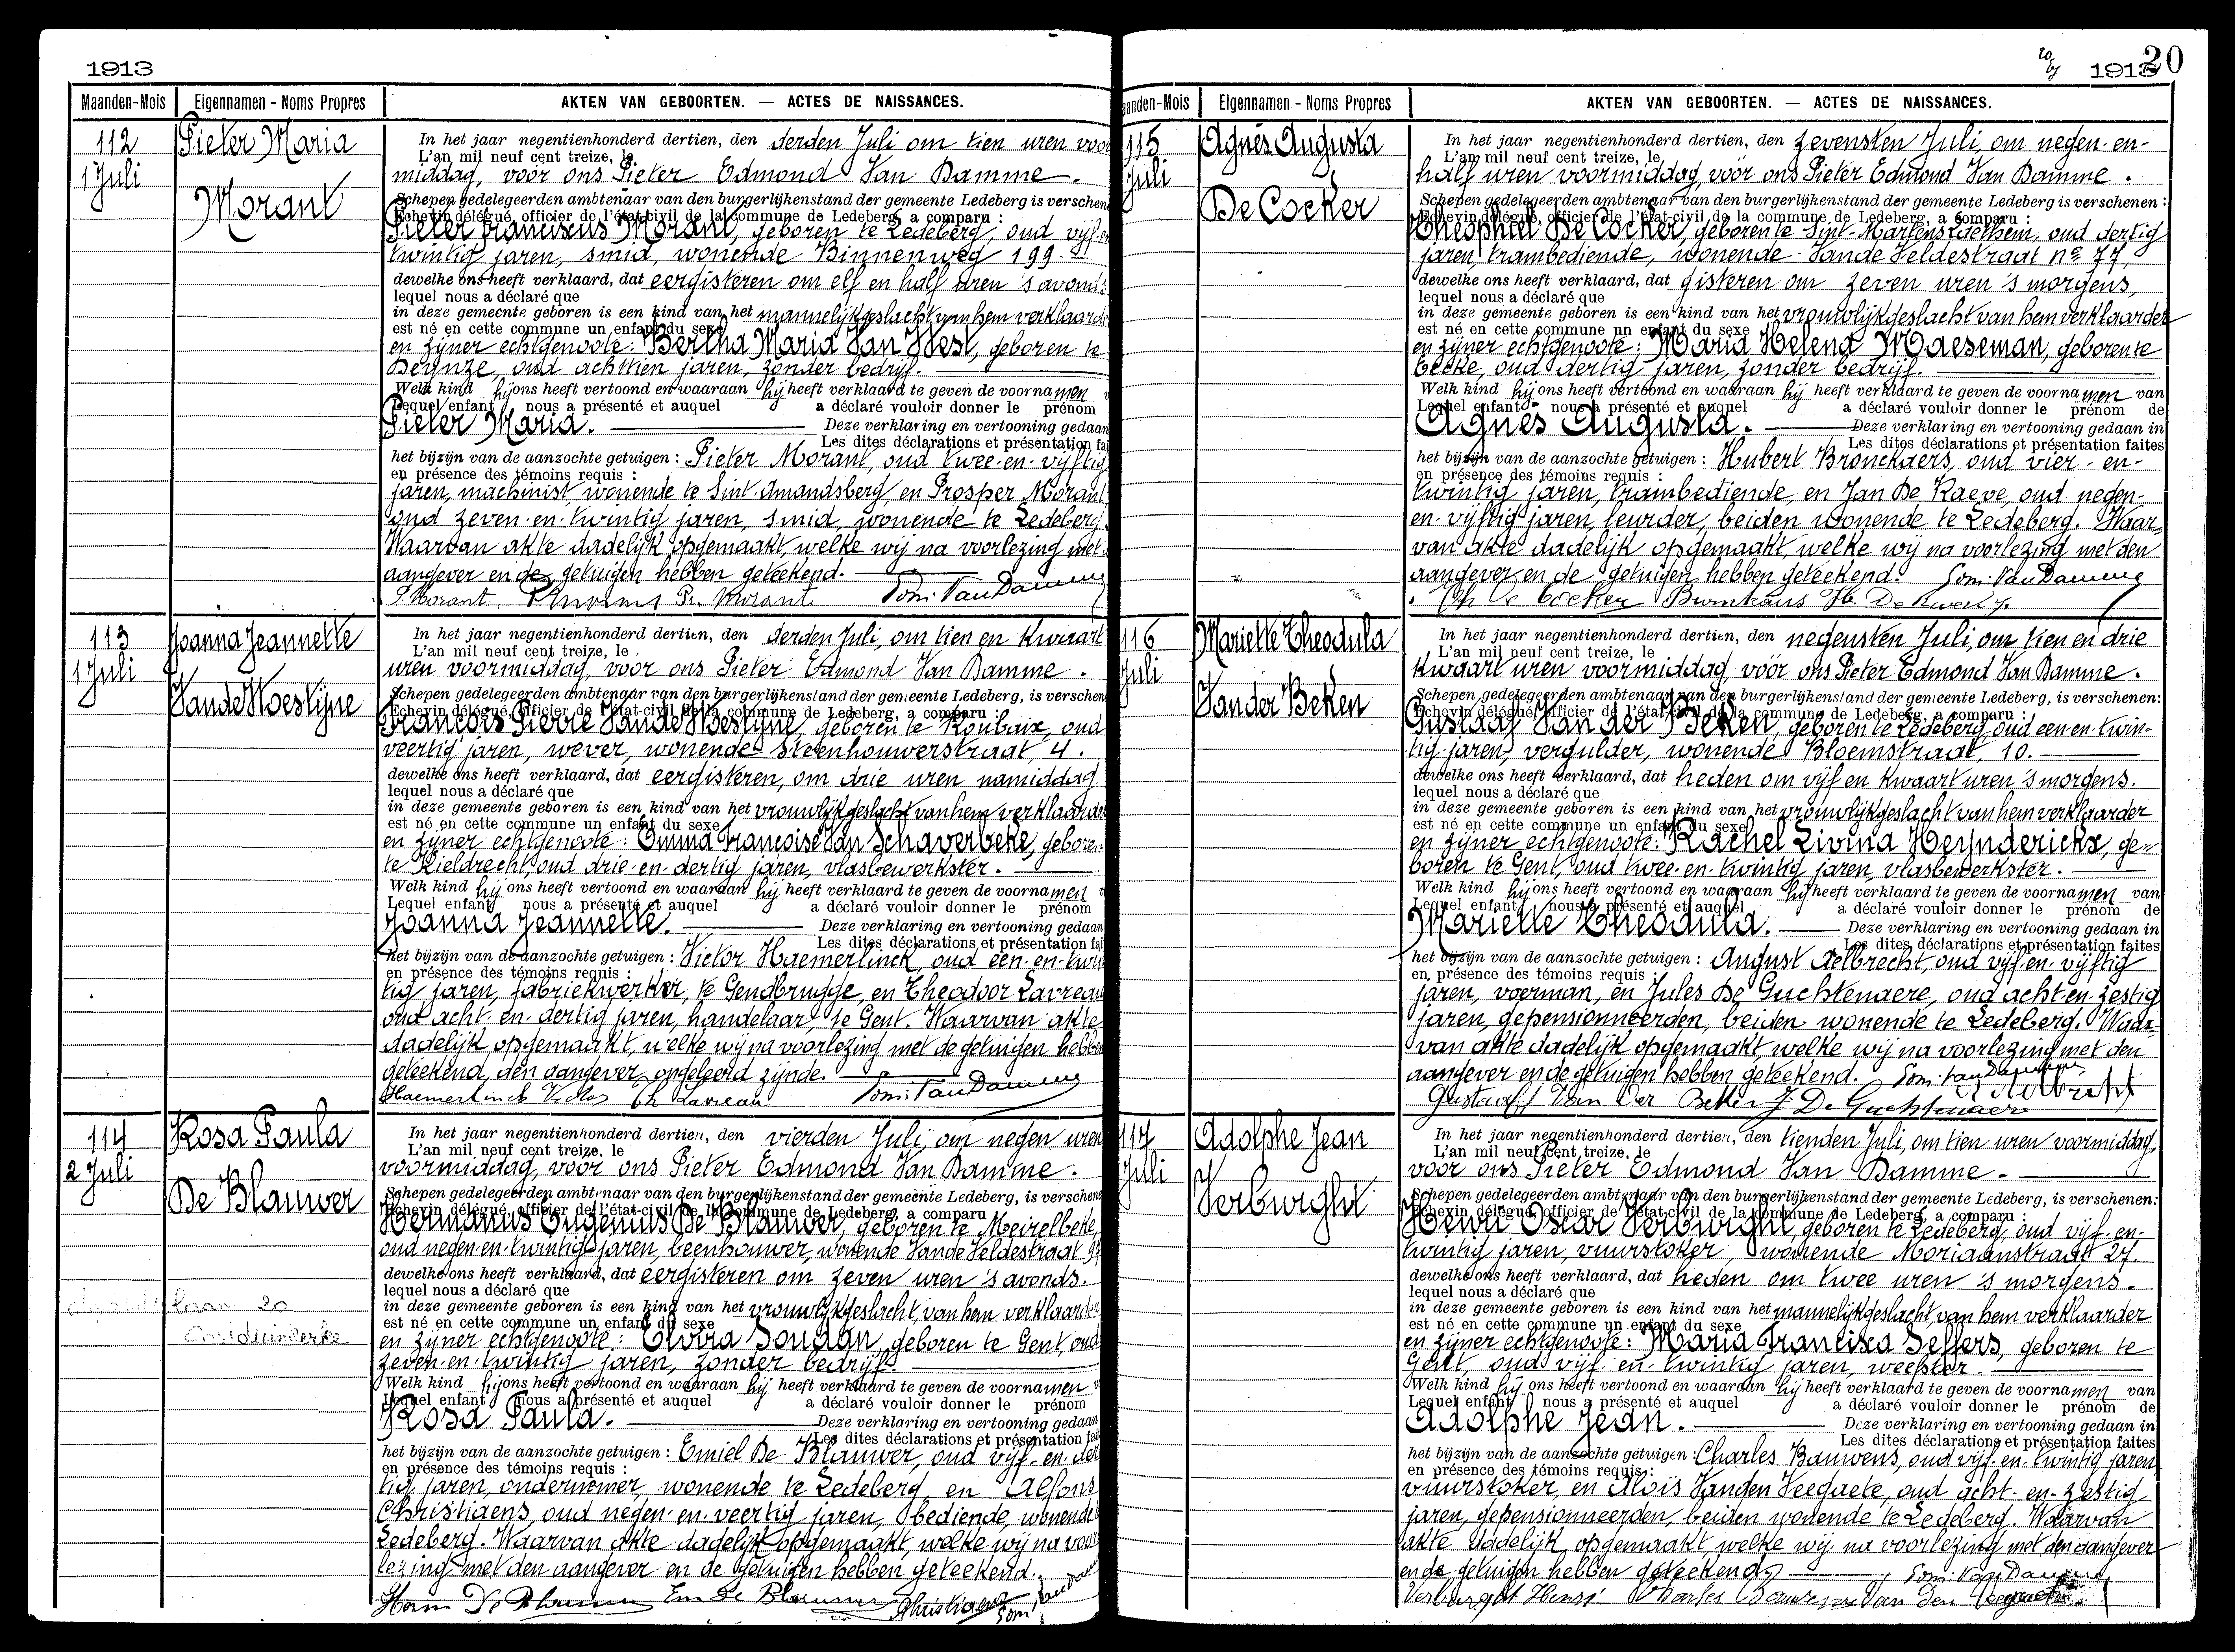 1913
Maanden-Mois
Eigennamen - Noms Propres
AKTEN VAN GEBOORTEN. — ACTES DE NAISSANCES.
112
1 Juli
Pieter Maria
Morant
In het jaar negentienhonderd dertien, den derden Juli om tien uren voor
L'an mil neuf cent treize, le
middag, voor ons Pieter Edmond Van Damme.
Schepen gedelegeerden ambtenaar van den burgerlijkenstand der gemeente Ledeberg is verschene
Echevin délégué, officier de l'état-civil de la commune de Ledeberg, a comparu :
Pieter Franciscus Morant, geboren te Ledeberg, oud vijf-en
twintig jaren, smid, wonende Binnenweg 199.
dewelke ons heeft verklaard, dat eergisteren om elf en half uren 's avonds
lequel nous a déclaré que
in deze gemeente geboren is een kind van het mannelijk geslacht van hem verklaarde
est né en cette commune un enfant du sexe
en zijner echtgenoote: Bertha Maria Van Hest, geboren te
Deynze, oud achttien jaren, zonder bedrijf.
Welk kind hij ons heeft vertoond en waaraan hij heeft verklaard te geven de voornamen
Lequel enfant nous a présenté et auquel a déclaré vouloir donner le prénom
Pieter Maria. Deze verklaring en vertooning gedaan
Les dites déclarations et présentation fai
het bijzijn van de aanzochte getuigen : Pieter Morant, oud twee-en-vijftig
en présence des témoins requis :
jaren, machinist, wonende te Sint-Amandsberg, en Prosper Morant
oud zeven-en-twintig jaren, smid, wonende te Ledeberg.
Waarvan akte dadelijk opgemaakt, welke wij na voorlezing met
aangever en de getuigen hebben geteekend.
P. Morant Pr. Morant Pom. Van Damme
113
1 Juli
Joanna Jeannette
Vande Woestijne
In het jaar negentienhonderd dertien, den derden Juli, om tien en kwaart
L'an mil neuf cent treize, le
uren voormiddag, voor ons Pieter Edmond Van Damme.
Schepen gedelegeerden ambtenaar van den burgerlijkenstand der gemeente Ledeberg, is verschene
Echevin délégué, officier de l'état-civil de la commune de Ledeberg, a comparu :
François Pierre Vande Woestijne, geboren te Roubaix, oud
veertig jaren, wever, wonende Steenhouwerstraat, 4.
dewelke ons heeft verklaard, dat eergisteren, om drie uren namiddag
lequel nous a déclaré que
in deze gemeente geboren is een kind van het vrouwlijk geslacht van hem verklaarde
est né en cette commune un enfant du sexe
en zijner echtgenoote: Emma Françoise Van Schaverbeke, geboren
te Kieldrecht, oud drie-en-dertig jaren, vlasbewerkster.
Welk kind hij ons heeft vertoond en waaraan hij heeft verklaard te geven de voornamen
Lequel enfant nous a présenté et auquel a déclaré vouloir donner le prénom
Joanna Jeannette. Deze verklaring en vertooning gedaan
Les dites déclarations et présentation fai
het bijzijn van de aanzochte getuigen : Victor Haemerlinck, oud een-en-twin
en présence des témoins requis :
tig jaren, fabriekwerker, te Gendbrugge, en Theodoor Lavreau
oud acht-en-dertig jaren, handelaar, te Gent. Waarvan akte
dadelijk opgemaakt, welke wij na voorlezing met de getuigen hebben
geteekend, den aangever ongeleerd zijnde.
Haemerlinck Victor Th Lavreau Pom. Van Damme
114
2 Juli
Rosa Paula
De Blauwer
laan 20
Oostduinkerke
In het jaar negentienhonderd dertien, den vierden Juli, om negen uren
L'an mil neuf cent treize, le
voormiddag, voor ons Pieter Edmond Van Damme.
Schepen gedelegeerden ambtenaar van den burgerlijkenstand der gemeente Ledeberg, is verschene
Echevin délégué, officier de l'état-civil de la commune de Ledeberg, a comparu :
Hermanus Eugenius De Blauwer, geboren te Meirelbeke,
oud negen-en-twintig jaren, beenhouwer, wonende Vande Veldestraat
dewelke ons heeft verklaard, dat eergisteren om zeven uren 's avonds.
lequel nous a déclaré que
in deze gemeente geboren is een kind van het vrouwlijk geslacht, van hem verklaarde
est né en cette commune un enfant du sexe
en zijner echtgenoote: Elvira Soudan, geboren te Gent, oud
zeven-en-twintig jaren, zonder bedrijf.
Welk kind hij ons heeft vertoond en waaraan hij heeft verklaard te geven de voornamen
Lequel enfant nous a présenté et auquel a déclaré vouloir donner le prénom
Rosa Paula. Deze verklaring en vertooning gedaan
Les dites déclarations et présentation fai
het bijzijn van de aanzochte getuigen : Emiel De Blauwer, oud vijf-en-der
en présence des témoins requis :
tig jaren, ondernemer, wonende te Ledeberg, en Alfons
Christiaens, oud negen-en-veertig jaren, bediende, wonende
Ledeberg. Waarvan akte dadelijk opgemaakt, welke wij na voor
lezing met den aangever en de getuigen hebben geteekend.
Herm De Blauwer Em De Blauwer Christiaens Pom. Van Damme
20
1913
Maanden-Mois
Eigennamen - Noms Propres
AKTEN VAN GEBOORTEN. — ACTES DE NAISSANCES.
115
Juli
Agnès Augusta
De Cocker
In het jaar negentienhonderd dertien, den zevensten Juli, om negen-en-
L'an mil neuf cent treize, le
half uren voormiddag, vóór ons Pieter Edmond Van Damme.
Schepen gedelegeerden ambtenaar van den burgerlijkenstand der gemeente Ledeberg is verschenen :
Echevin délégué, officier de l'état-civil de la commune de Ledeberg, a comparu :
Theophiel De Cocker, geboren te Sint-Martens Laethem, oud dertig
jaren, trambediende, wonende Vande Veldestraat nº 77,
dewelke ons heeft verklaard, dat gisteren om zeven uren 's morgens,
lequel nous a déclaré que
in deze gemeente geboren is een kind van het vrouwlijk geslacht van hem verklaarder
est né en cette commune un enfant du sexe
en zijner echtgenoote: Maria Helena Maeseman, geboren te
Eecke, oud dertig jaren, zonder bedrijf.
Welk kind hij ons heeft vertoond en waaraan hij heeft verklaard te geven de voornamen van
Lequel enfant nous a présenté et auquel a déclaré vouloir donner le prénom de
Agnès Augusta. Deze verklaring en vertooning gedaan in
Les dites déclarations et présentation faites
het bijzijn van de aanzochte getuigen : Hubert Bronckaers, oud vier-en-
en présence des témoins requis :
twintig jaren, trambediende, en Jan De Raeve, oud negen-
en-vijftig jaren, leurder, beiden wonende te Ledeberg. Waar-
van akte dadelijk opgemaakt, welke wij na voorlezing met den
aangever en de getuigen hebben geteekend. Pom. Van Damme
Th De Cocker
116
Juli
Mariette Theodula
Van der Beken
In het jaar negentienhonderd dertien, den negensten Juli, om tien en drie
L'an mil neuf cent treize, le
kwaart uren voormiddag, vóór ons Pieter Edmond Van Damme.
Schepen gedelegeerden ambtenaar van den burgerlijkenstand der gemeente Ledeberg, is verschenen:
Echevin délégué, officier de l'état-civil de la commune de Ledeberg, a comparu :
Gustaaf Van der Beken, geboren te Ledeberg, oud een-en-twin-
tig jaren, vergulder, wonende Bloemstraat, 10.
dewelke ons heeft verklaard, dat heden om vijf en kwaart uren 's morgens.
lequel nous a déclaré que
in deze gemeente geboren is een kind van het vrouwlijk geslacht van hem verklaarder
est né en cette commune un enfant du sexe
en zijner echtgenoote: Rachel Livina Heynderickx, ge-
boren te Gent, oud twee-en-twintig jaren, vlasbewerkster.
Welk kind hij ons heeft vertoond en waaraan hij heeft verklaard te geven de voornamen van
Lequel enfant nous a présenté et auquel a déclaré vouloir donner le prénom de
Mariette Theodula. Deze verklaring en vertooning gedaan in
Les dites déclarations et présentation faites
het bijzijn van de aanzochte getuigen : August Aelbrecht, oud vijf-en-vijftig
en présence des témoins requis :
jaren, voerman, en Jules De Guchtenaere, oud acht-en-zestig
jaren, gepensionneerden, beiden wonende te Ledeberg. Waar-
van akte dadelijk opgemaakt welke wij na voorlezing met den
aangever en de getuigen hebben geteekend. Pom. Van Damme
Gustaaf Van der Beken J. De Guchtenaere Aelbrecht
117
Juli
Adolphe Jean
Verburght
In het jaar negentienhonderd dertien, den tienden Juli, om tien uren voormiddag,
L'an mil neuf cent treize, le
voor ons Pieter Edmond Van Damme.
Schepen gedelegeerden ambtenaar van den burgerlijkenstand der gemeente Ledeberg, is verschenen:
Echevin délégué, officier de l'état-civil de la commune de Ledeberg, a comparu :
Henri Oscar Verburght, geboren te Ledeberg, oud vijf-en-
twintig jaren, vuurstoker, wonende Moriaanstraat 27.
dewelke ons heeft verklaard, dat heden om twee uren 's morgens.
lequel nous a déclaré que
in deze gemeente geboren is een kind van het mannelijk geslacht, van hem verklaarder
est né en cette commune un enfant du sexe
en zijner echtgenoote: Maria Francisca Seffers, geboren te
Gent, oud vijf-en-twintig jaren, weefster.
Welk kind hij ons heeft vertoond en waaraan hij heeft verklaard te geven de voornamen van
Lequel enfant nous a présenté et auquel a déclaré vouloir donner le prénom de
Adolphe Jean. Deze verklaring en vertooning gedaan in
Les dites déclarations et présentation faites
het bijzijn van de aanzochte getuigen : Charles Bauwens, oud vijf-en-twintig jaren,
en présence des témoins requis :
vuurstoker, en Aloïs Vanden Veegaete, oud acht-en-zestig
jaren, gepensionneerden, beiden wonende te Ledeberg. Waarvan
akte dadelijk opgemaakt, welke wij na voorlezing met den aangever
en de getuigen hebben geteekend. Pom. Van Damme
Verburght Henri Charles Bauwens Van den Veegaete